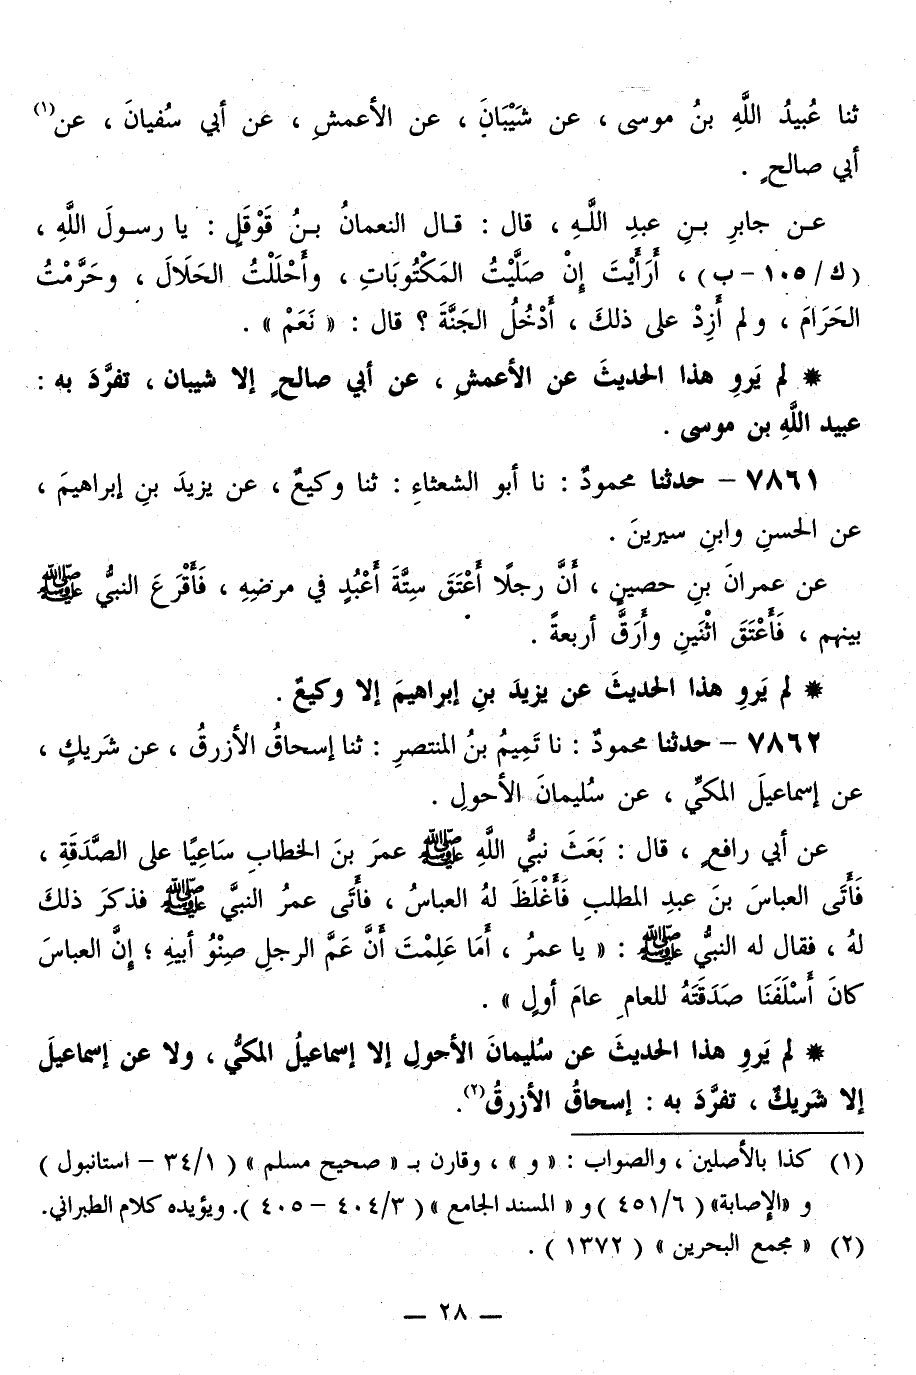 ثنا عُبيدُ اللَّهِ بنُ موسى ، عن شَيْبَانَ ، عن الأعمشِ ، عن أبي سُفيانَ ، عن(١)
أبي صالحٍ .
عن جابرِ بنِ عبدِ اللَّهِ ، قال : قال النعمانُ بنُ قَوْقَلٍ : يا رسولَ اللَّهِ ،
( ك / ١٠٥ - ب ) ، أَرَأَيْتَ إِنْ صَلَّيْتُ المَكْتُوبَاتِ ، وأَحْلَلْتُ الحَلَالَ ، وحَرَّمْتُ
الحَرَامَ ، ولم أَزِدْ على ذلكَ ، أَدْخُلُ الجَنَّةَ ؟ قال : « نَعَمْ » .
* لم يَروِ هذا الحديثَ عن الأعمشِ ، عن أبي صالحٍ إلا شيبان ، تفرَّدَ به :
عبيد اللَّهِ بن موسى .
٧٨٦١ - حدثنا محمودٌ : نا أبو الشعثاءِ : ثنا وكيعٌ ، عن يزيدَ بنِ إبراهيمَ ،
عن الحسنِ وابنِ سيرينَ .
عن عمرانَ بنِ حصينٍ ، أَنَّ رجلًا أَعْتَقَ سِتَّةَ أَعْبُدٍ في مرضِهِ ، فَأَقْرَعَ النبيُّ ﷺ
بينهم ، فَأَعْتَقَ اثْنَينِ وأَرَقَّ أربعةً .
* لم يَروِ هذا الحديثَ عن يزيدَ بنِ إبراهيمَ إلا وكيعٌ .
٧٨٦٢ - حدثنا محمودٌ : نا تَمِيمُ بنُ المنتصرِ : ثنا إسحاقُ الأزرقُ ، عن شَريكٍ ،
عن إسماعيلَ المكيِّ ، عن سُليمانَ الأحولِ .
عن أبي رافعٍ ، قال : بَعَثَ نبيُّ اللَّهِ ﷺ عمرَ بنَ الخطابِ سَاعِيًا على الصَّدَقَةِ ،
فَأَتَى العباسَ بنَ عبدِ المطلبِ فَأَغْلَظَ لهُ العباسُ ، فأَتَى عمرُ النبيَّ ﷺ فذكرَ ذلكَ
لهُ ، فقال له النبيُّ ﷺ : « يا عمرُ ، أَمَا عَلِمْتَ أَنَّ عَمَّ الرجلِ صِنْوُ أبيهِ ؛ إنَّ العباسَ
كانَ أَسْلَفَنَا صَدَقَتَهُ للعامِ عامَ أولٍ » .
* لم يَروِ هذا الحديثَ عن سُليمانَ الأحولِ إلا إسماعيلُ المكيُّ ، ولا عن إسماعيلَ
إلا شَريكٌ ، تفرَّدَ به : إسحاقُ الأزرقُ(٢).
(١) كذا بالأصلين ، والصواب : « و » ، وقارن بـ « صحيح مسلم » ( ٣٤/١ - استانبول )
و «الإصابة» ( ٤٥١/٦ ) و « المسند الجامع » ( ٤٠٤/٣ - ٤٠٥ ). ويؤيده كلام الطبراني.
(٢) « مجمع البحرين » ( ١٣٧٢ ) .
— ٢٨ —